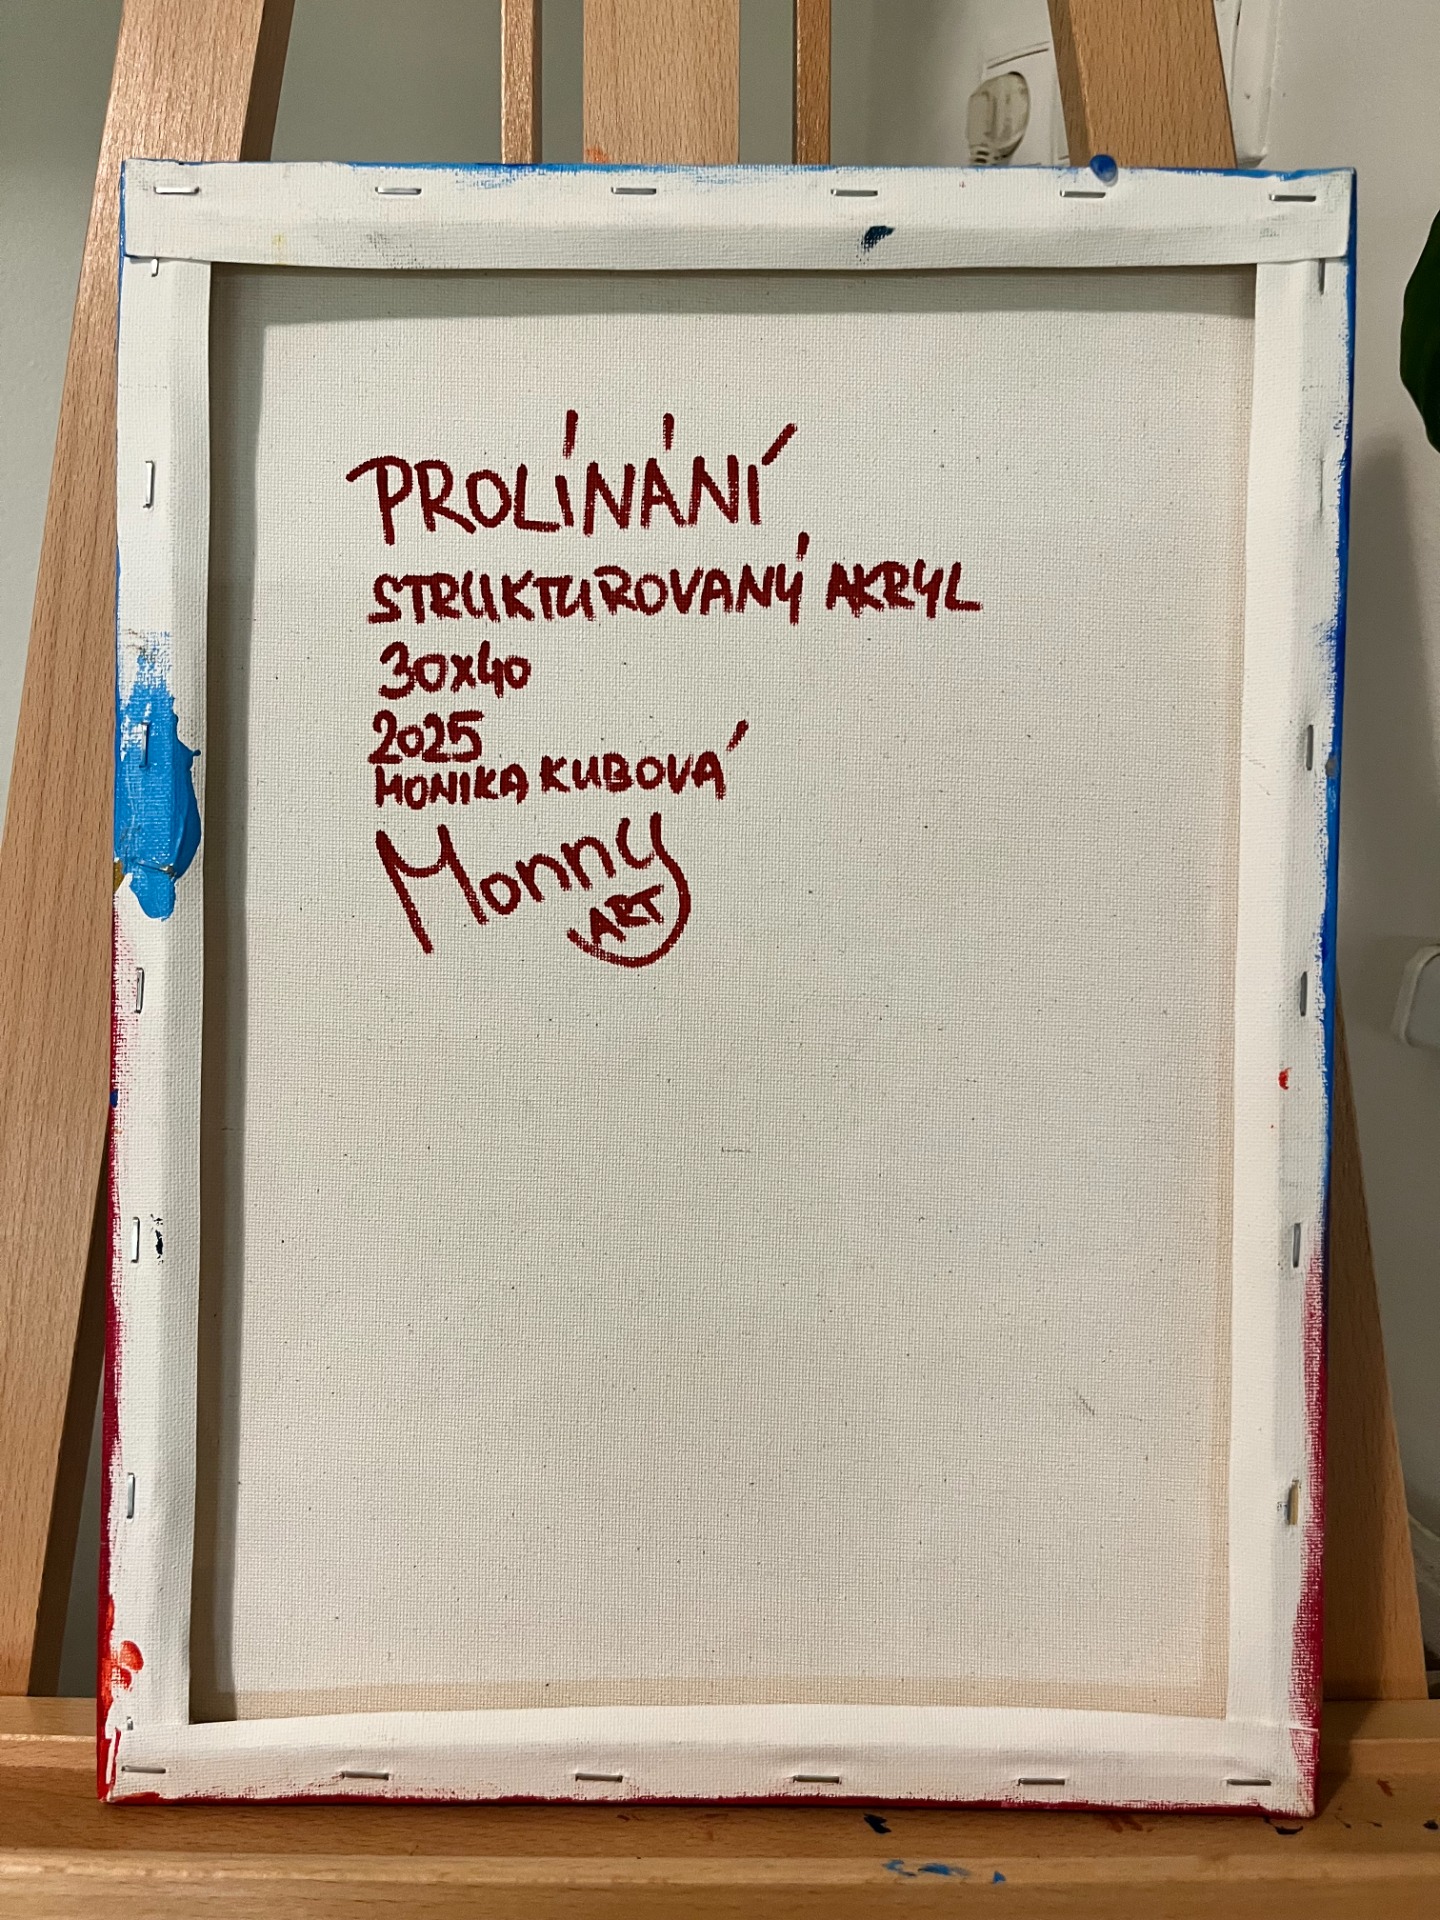 PROLÍNÁNÍ
STRUKTUROVANÝ AKRYL
30x40
2025
MONIKA KUBOVÁ
Monny
ART